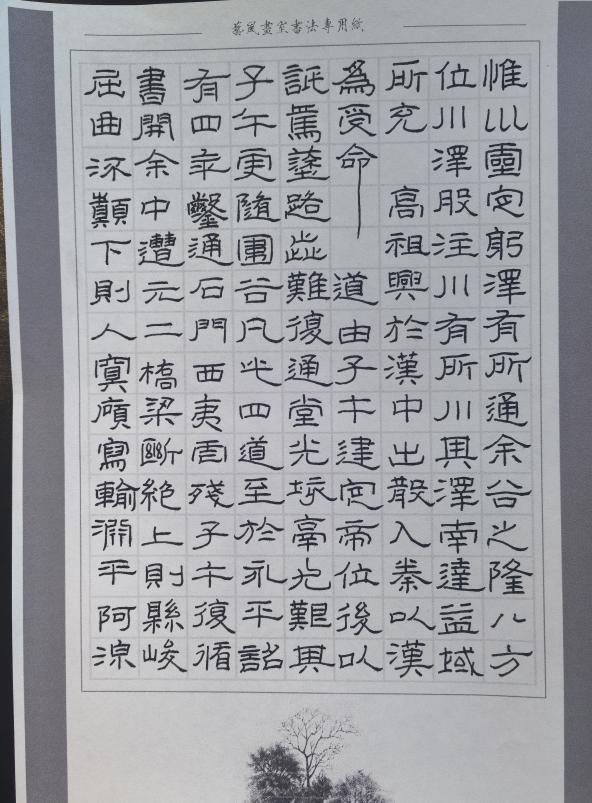 畫室書法專用紙
惟巛靈定躬澤有所通余谷之隆八方
位川澤股注川有所川其澤南達益域
所充高祖興於漢中出散入秦以漢
為受命道由子午建定帝位後以
詆焉塗路歰難復通堂光垓鬲尤艱其
子午更隨圍谷凡此四道至於永平詔
有四年鑿通石門西夷虐殘子午復循
書開余中遭元二橋梁斷絕上則縣峻
屈曲流顛下則人冥廎寫輸淵平阿湶